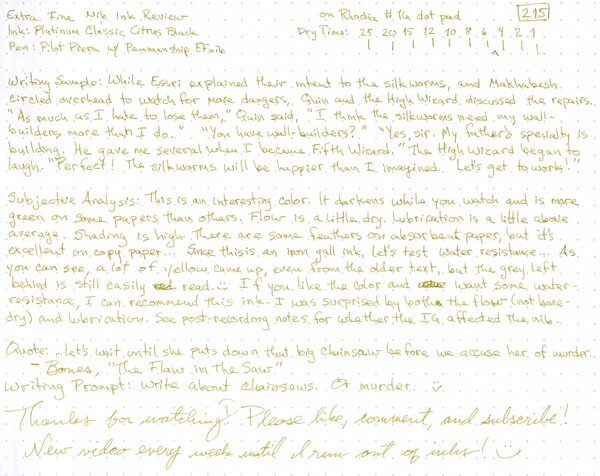 Extra Fine Nib, Ink Review on Rhodia #16 dot pad 215
Ink: Platinum Classic Citrus Black Dry Time: 25 20 15 12 10 8 6 4 2 1
Pen: Pilot Prera w/ Penmanship EF nib
Writing Sample: While Essri explained their intent to the silkworms, and Makhabesh
circled overhead to watch for more dangers, Quin and the High Wizard discussed the repairs.
"As much as I hate to lose them," Quin said, "I think the silkworms need my wall-
builders more than I do." "You have wall-builders?" "Yes, sir. My father's specialty is
building. He gave me several when I became Fifth Wizard." The High Wizard began to
laugh. "Perfect! The silkworms will be happier than I imagined. Let's get to work!"
Subjective Analysis: This is an interesting color. It darkens while you watch and is more
green on some papers than others. Flow is a little dry. Lubrication is a little above
average. Shading is high. There are some feathers on absorbent paper, but it's
excellent on copy paper... Since this is an iron gall ink, let's test water resistance... As
you can see, a lot of yellow came up, even from the older text, but the grey left
behind is still easily read. :) If you like the color and want some water-
resistance, I can recommend this ink. I was surprised by both the flow (not bone-
dry) and lubrication. See post-recording notes for whether the IG affected the nib.
Quote: ...let's wait until she puts down that big chainsaw before we accuse her of murder.
- Bones, "The Flaw in the Saw"
Writing Prompt: Write about chainsaws. Or murder. :)
Thanks for watching! Please like, comment, and subscribe!
New video every week until I run out of inks! :)